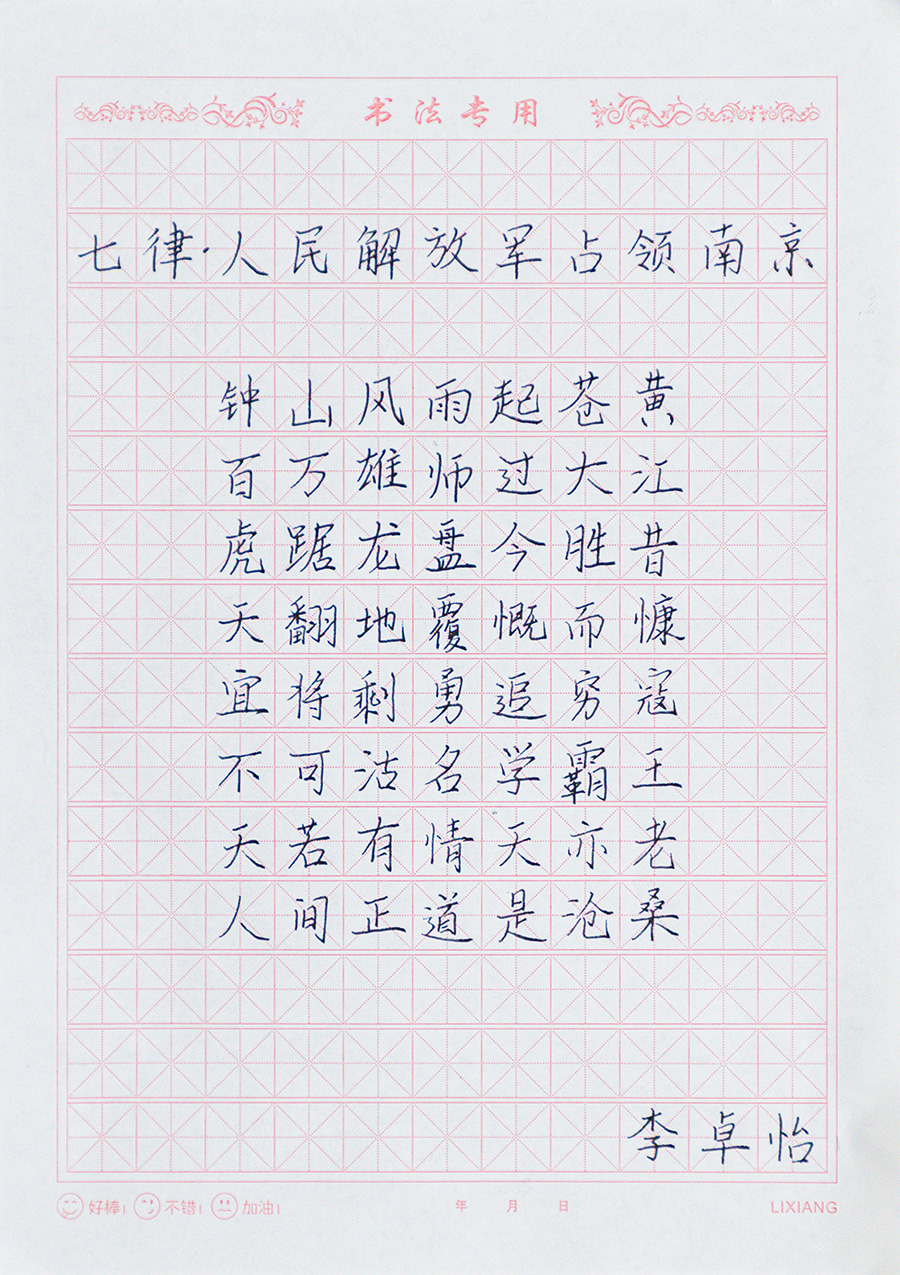 书法专用
七律·人民解放军占领南京
钟山风雨起苍黄
百万雄师过大江
虎踞龙盘今胜昔
天翻地覆慨而慷
宜将剩勇追穷寇
不可沽名学霸王
天若有情天亦老
人间正道是沧桑
李卓怡
好棒! 不错! 加油! 年 月 日 LIXIANG